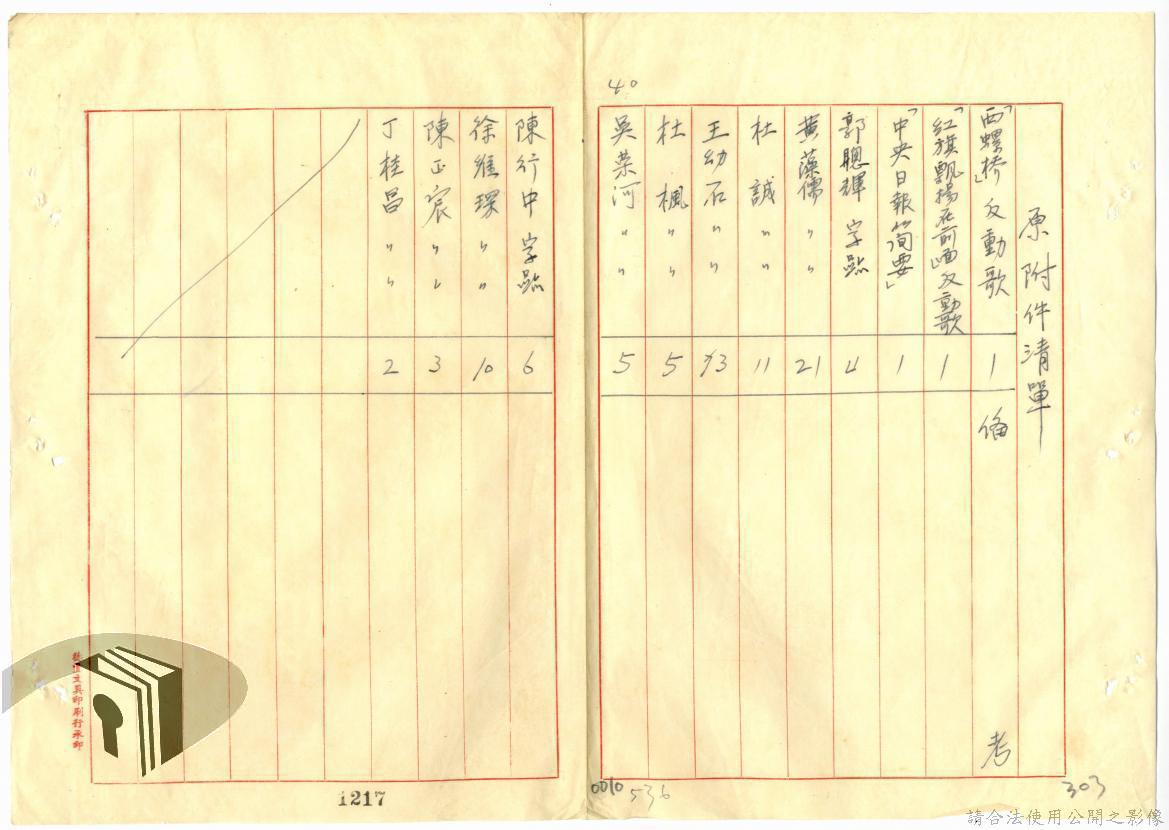 40
原附件清單
「西螺橋」反動歌 1 備 考
「紅旗飄揚在前面」反動歌 1
「中央日報簡要」 1
郭聰輝 字跡 4
黃藻儒 〃 〃 21
杜誠 〃 〃 11
王幼石 〃 〃 13
杜楓 〃 〃 5
吳榮河 〃 〃 5
陳行中 字跡 6
徐維琛 〃 〃 10
陳正宸 〃 〃 3
丁桂昌 〃 〃 2
文具印刷行承印
1217
0010
536
303
請合法使用公開之影像